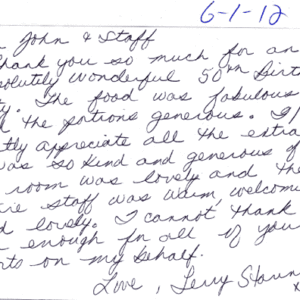 6-1-12
John & Staff
Thank you so much for an
solutely wonderful 50th Birt
ty. The food was fabulous
d the portions generous. I
tly appreciate all the extra
was so kind and generous of
room was lovely and the
re staff was warm, welcomin
d lovely. I cannot thank
enough for all of you
rts on my behalf.
Love, Terry